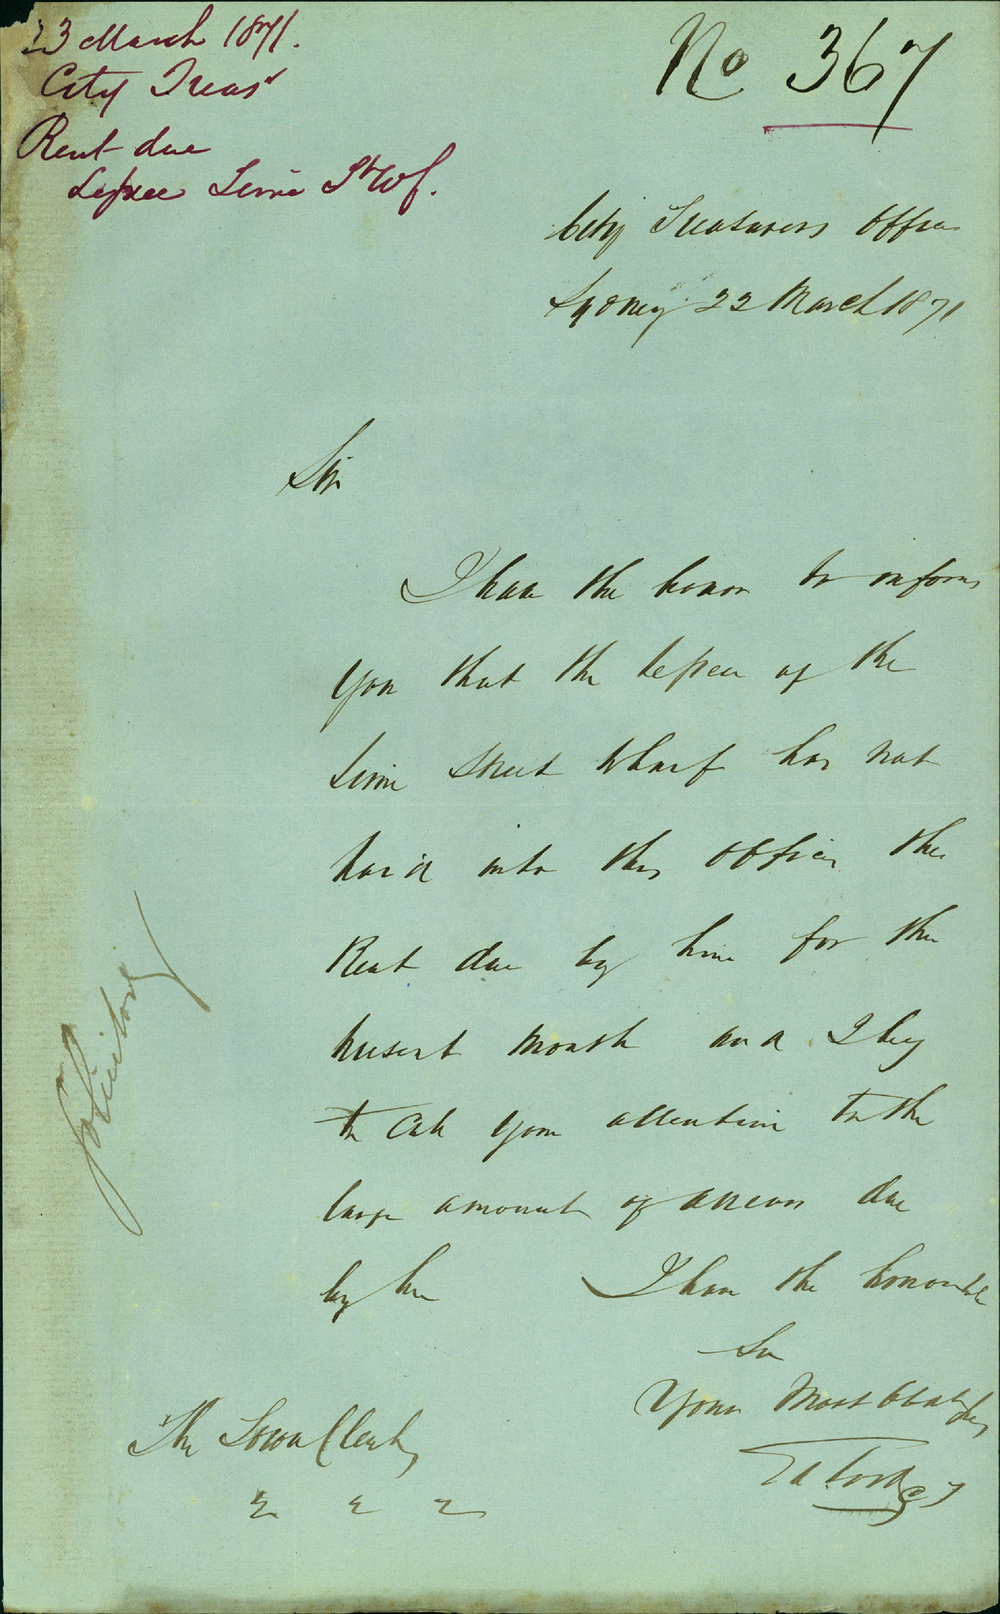 23 March 1871.
City Treasr
Rent due
Lessee Lime St Wf.
No 367
City Treasurers Office
Sydney 22 March 1871
Sir
I have the honor to inform
you that the lessee of the
Lime Street Wharf has not
paid into this office the
Rent due by him for the
present month and I beg
to call your attention to the
large amount of arrears due
by him I have the honor to be
Sir
Your Most Obdt
The Town Clerk
Solicitor